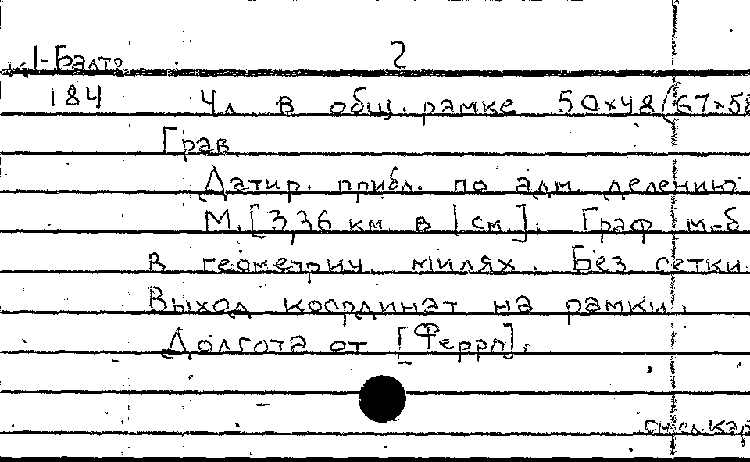 к1-Балт. 2
184 4л в общ. рамке 50х48(67х58
Грав.
Датир. прибл. по адм. делению.
М.[3,36 км в 1см.]. Граф м-б
в геометрич. милях. Без сетки.
Выход координат на рамки.
Долгота от [Ферро].
см.сл.кар